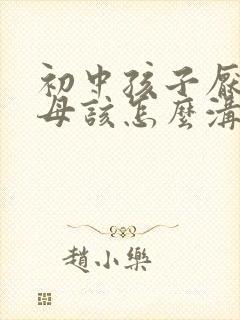 初中孩子厭
母該怎麼溝
趙小樂